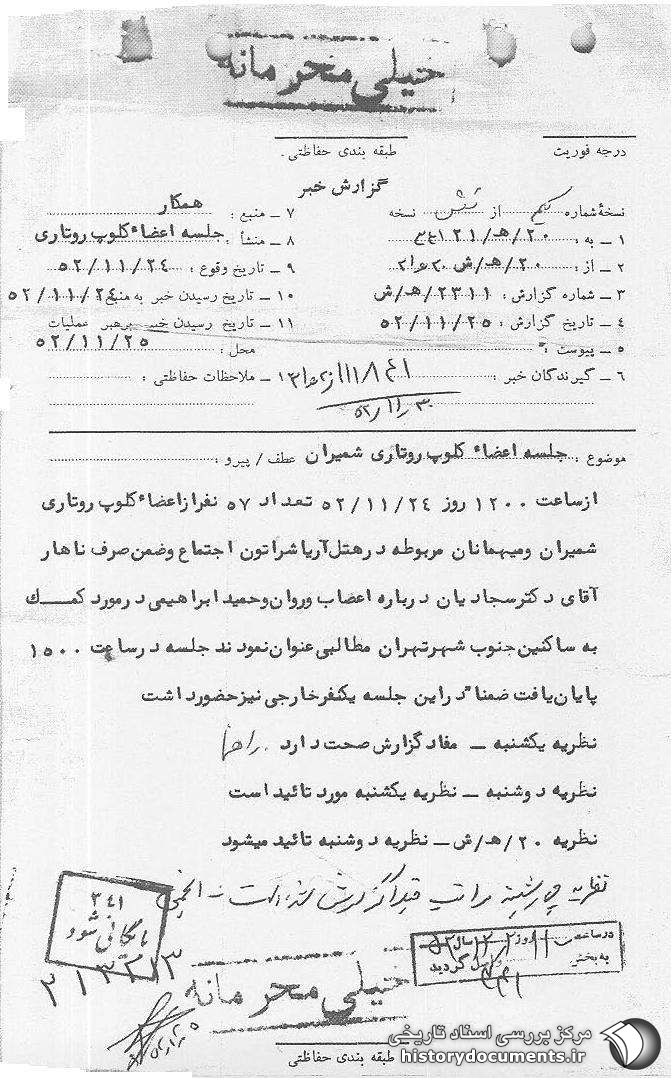 خیلی محرمانه
درجه فوریت
طبقه بندی حفاظتی
گزارش خبر
نسخهٔ شماره یکم از شش نسخه
۷ ـ منبع : همکار
۱ ـ به :
۸ ـ منشأ : جلسه اعضاء کلوپ روتاری
۲ ـ از : ۲۰/هـ/ش
۹ ـ تاریخ وقوع : ۵۲/۱۱/۲۴
۳ ـ شماره گزارش : ۲۳۱۱/هـ/ش
۱۰ ـ تاریخ رسیدن خبر به منبع : ۵۲/۱۱/۲۴
۴ ـ تاریخ گزارش : ۵۲/۱۱/۲۵
۱۱ ـ تاریخ رسیدن خبر برهبر عملیات
محل : ۵۲/۱۱/۲۵
۵ ـ پیوست :
۶ ـ گیرندگان خبر :
ملاحظات حفاظتی :
۵۲/۱۱/۳۰
موضوع : جلسه اعضاء کلوپ روتاری شمیران عطف / پیرو :
ازساعت ۱۲۰۰ روز ۵۲/۱۱/۲۴ تعداد ۵۷ نفرازاعضاء کلوپ روتاری
شمیران ومیهمانان مربوطه درهتل آریاشراتون اجتماع وضمن صرف ناهار
آقای دکترسجادیان درباره اعصاب وروان وحمیدابراهیمی درمورد کمک
به ساکنین جنوب شهرتهران مطالبی عنوان نمودند جلسه درساعت ۱۵۰۰
پایان یافت ضمنا" دراین جلسه یکنفرخارجی نیزحضورداشت
نظریه یکشنبه ـ مفاد گزارش صحت دارد .
نظریه دوشنبه ـ نظریه یکشنبه مورد تائید است
نظریه ۲۰/هـ/ش ـ نظریه دوشنبه تائید میشود
نظریه چهارشنبه مراتب قبلا گزارش شده است
۳۴۱
بایگانی شود
در ساعت روز سال
به بخش واصل گردید
خیلی محرمانه
طبقه بندی حفاظتی
مرکز بررسی اسناد تاریخی
historydocuments.ir